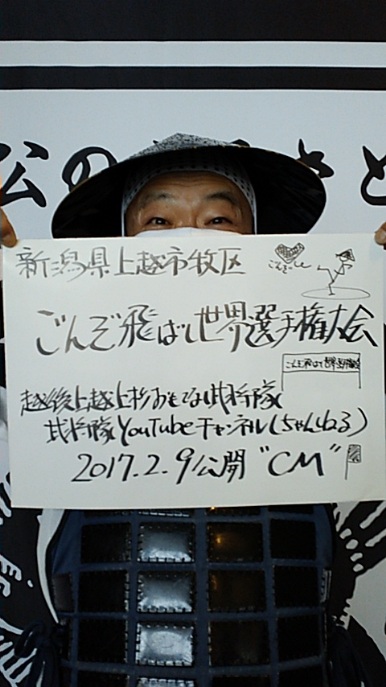 公の さと
新潟県上越市牧区
ごんぞ飛ばし世界選手権大会
越後上越上杉おもてなし武将隊
武将隊YouTubeチャンネル(ちゃんねる)
2017.2.9公開"CM"